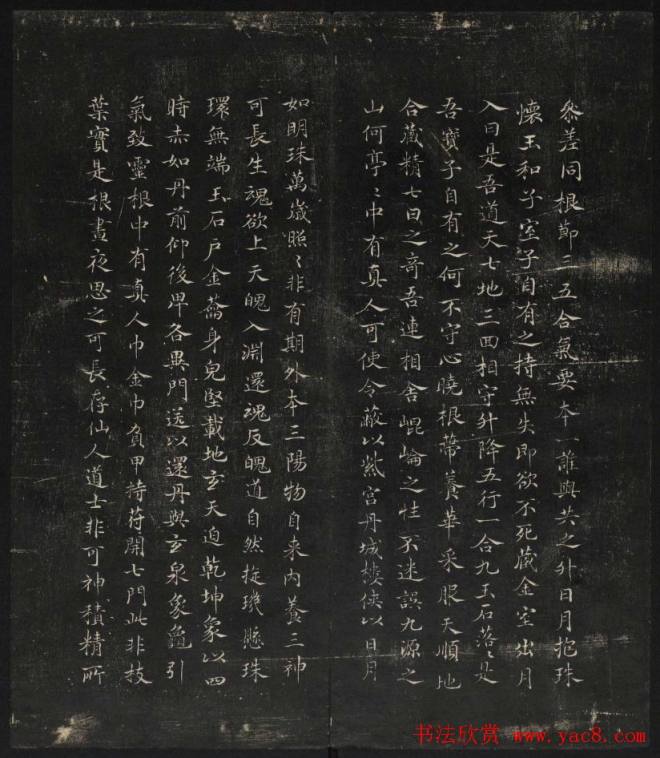 叅差同根節三五合氣要本一誰與共之升日月抱珠
懷玉和子室子自有之持無失即欲不死藏金室出月
入日是吾道天七地三回相守升降五行一合九玉石落〻是
吾寶子自有之何不守心曉根蒂養華采服天順地
合藏精七日之奇吾連相舍崐崘之性不迷誤九源之
山何亭〻中有真人可使令蔽以紫宮丹城樓俠以日月
如明珠萬歲照〻非有期外本三陽物自来内養三神
可長生魂欲上天魄入淵還魂反魄道自然璇璣懸珠
環無端玉石戶金蘥身皃堅載地玄天迫乾坤象以四
時赤如丹前仰後卑各異門送以還丹與玄泉象龜引
氣致靈根中有真人巾金巾負甲持苻開七門此非枝
葉實是根晝夜思之可長存仙人道士非可神積精所
书法欣赏 www.yac8.com